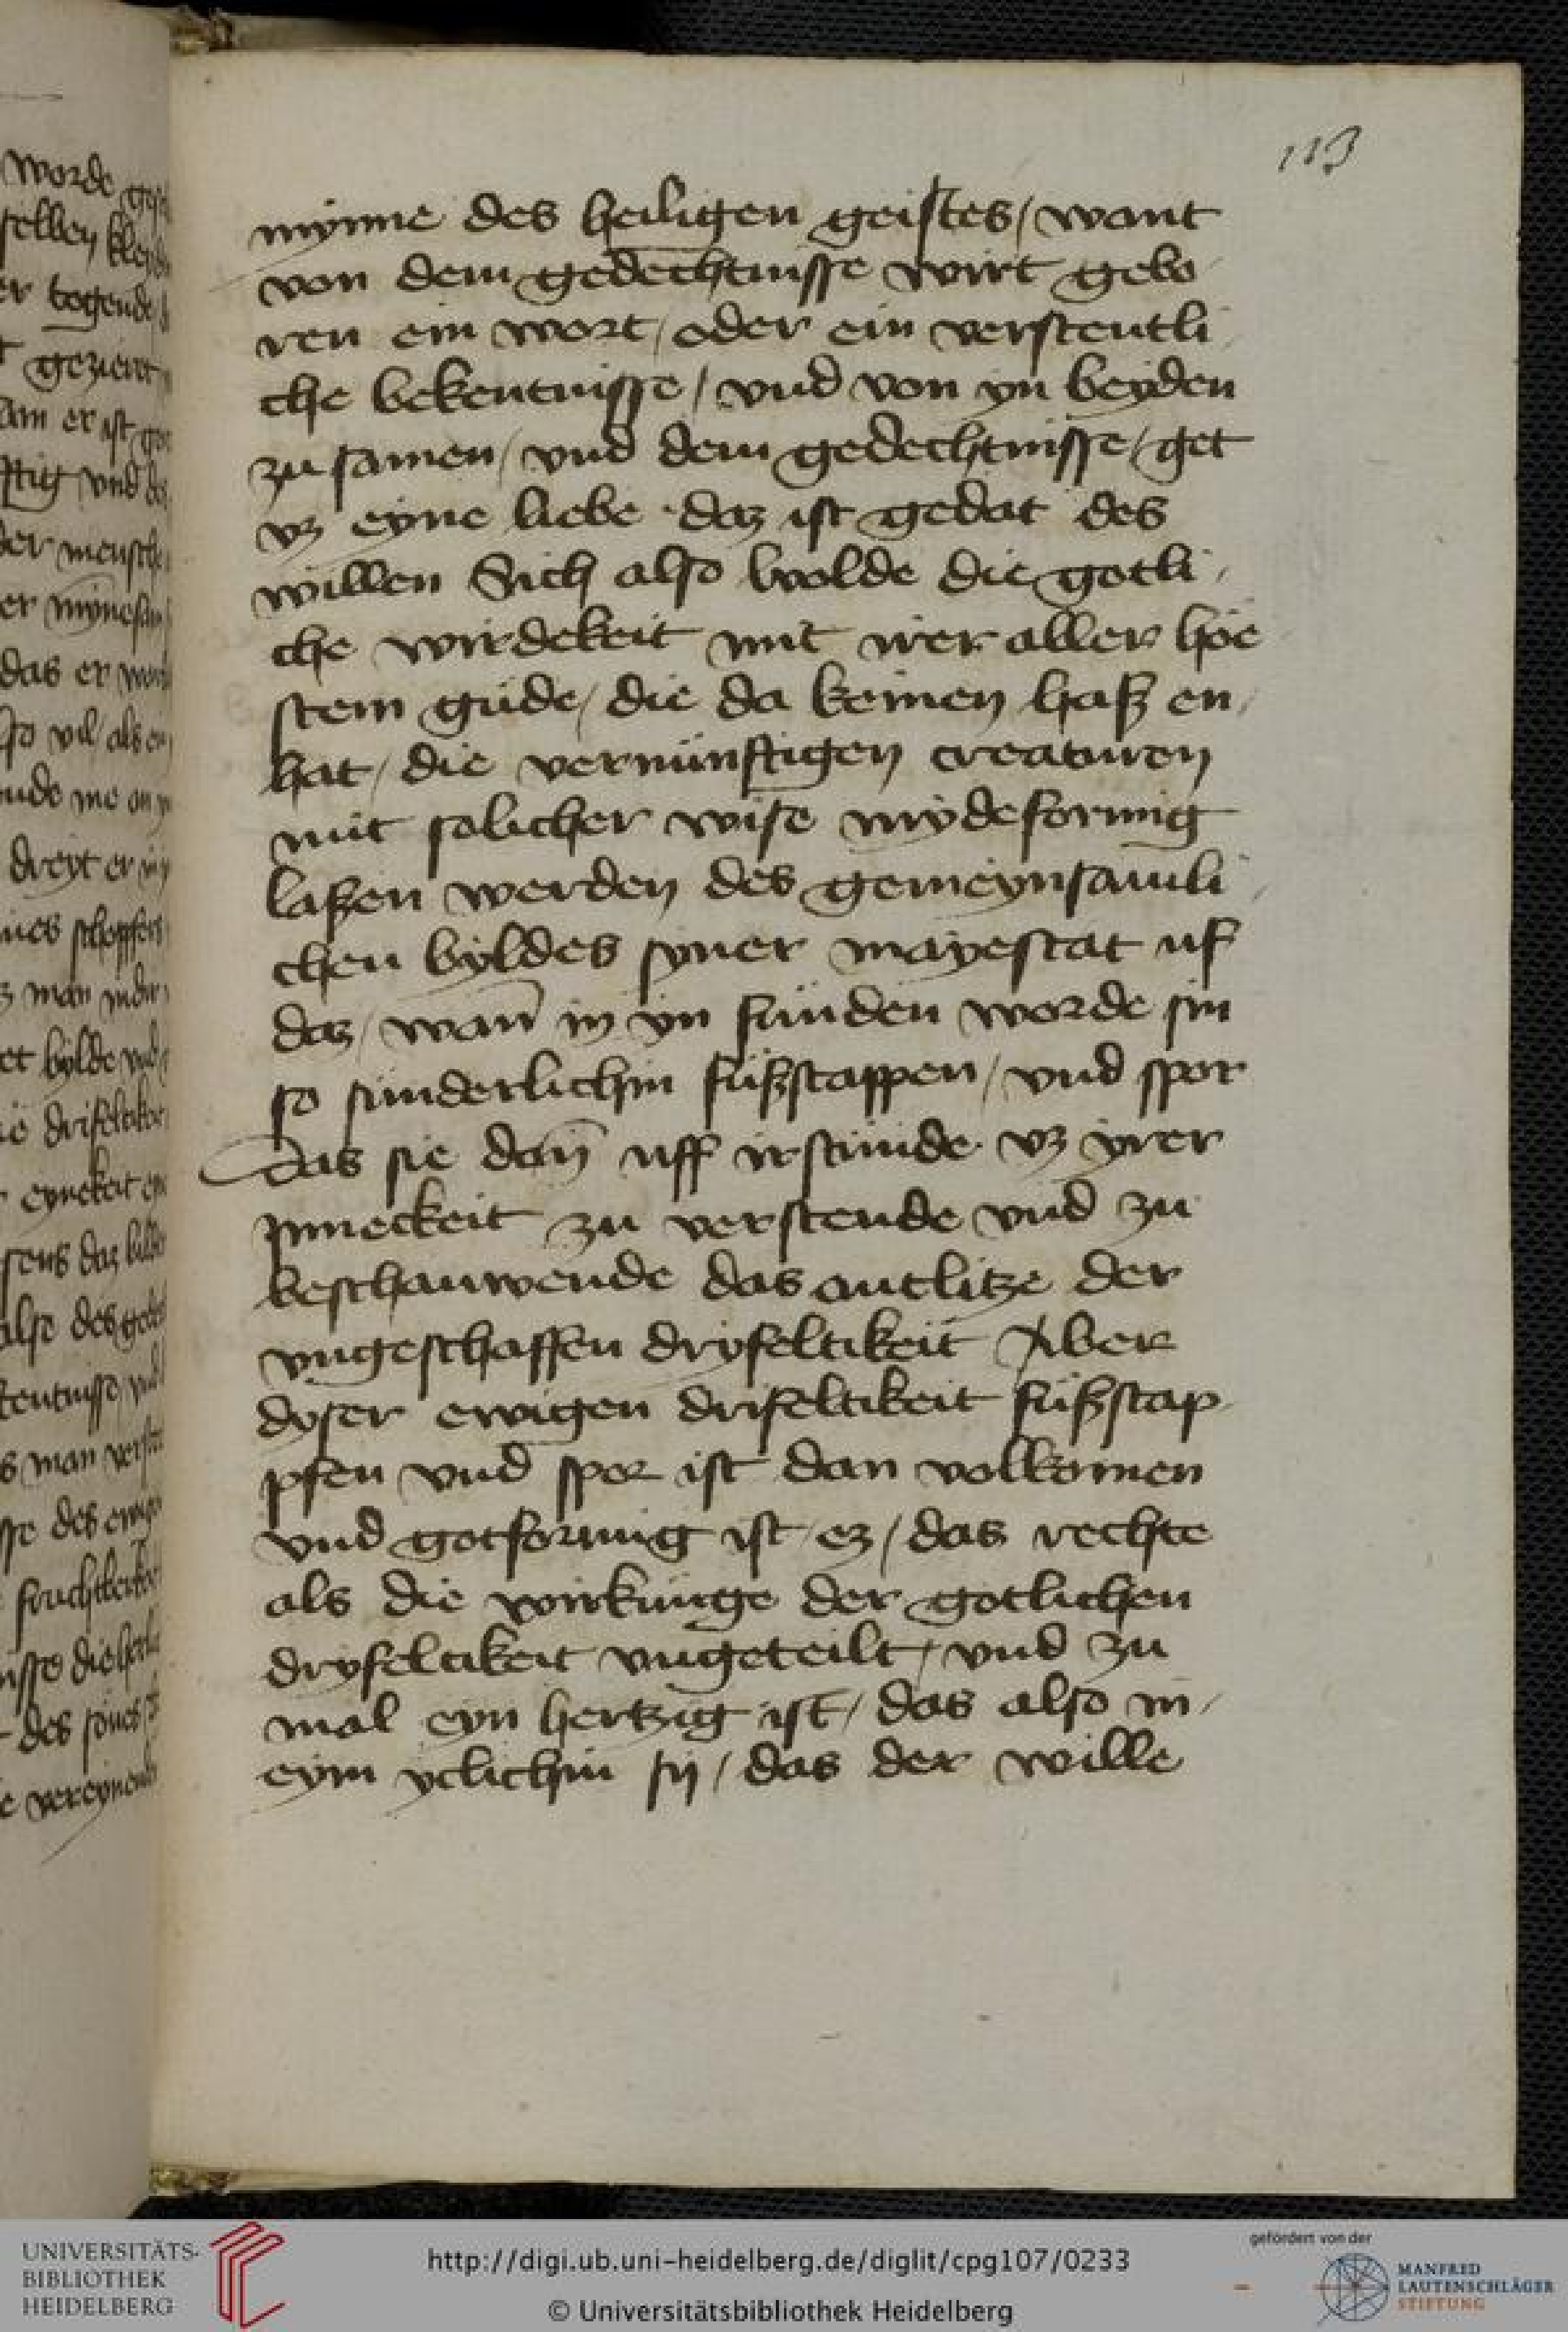 113
mynne des heiligen geistes / want
von dem gedechtnisse wirt gebo
ren ein wort / oder ein verstentli
che bekentnisse / vnd von yn beyden
zu samen / vnd dem gedechtnisse / get
vz eyne liebe daz ist gedat des
willen Sich also wolde die gotli
che wirdekeit mit irer aller hoe
stem gude / die da keinen hasz en
hat / die vernünftigen creaturen
mit solicher wise mydeformig
laszen werden des gemeynsamli
chen byldes syner mayestat uf
daz / wan̄ in yn funden worde sin
so sunderlichin fuszstappen / vnd spor
Das sie dan̄ uff irstunde vz yrer
ynneckeit zu verstende vnd zu
beschauwende das antlitze der
vngeschaffen dryfeltikeit Aber
dyser ewigen drifeltikeit fuszstap
pfen vnd spor ist dan volkomen
vnd gotformig ist ez / das rechte
als die wirkunge der gotlichen
dryfeltikeit vngeteilt / vnd zu
mal eyn hertzig ist / das also in
eym yclichin sij / das der wille
worde
selben
er togende
gezieret
am er ist
vnd
er mensche
das er
vil als
nude me an
dreyt er
man
et bylde vnd
eynekeit
daz
also des
man
des
die
des sones
UNIVERSITÄTS-
BIBLIOTHEK
HEIDELBERG
http://digi.ub.uni-heidelberg.de/diglit/cpg107/0233
© Universitätsbibliothek Heidelberg
gefördert von der
MANFRED
LAUTENSCHLÄGER
STIFTUNG